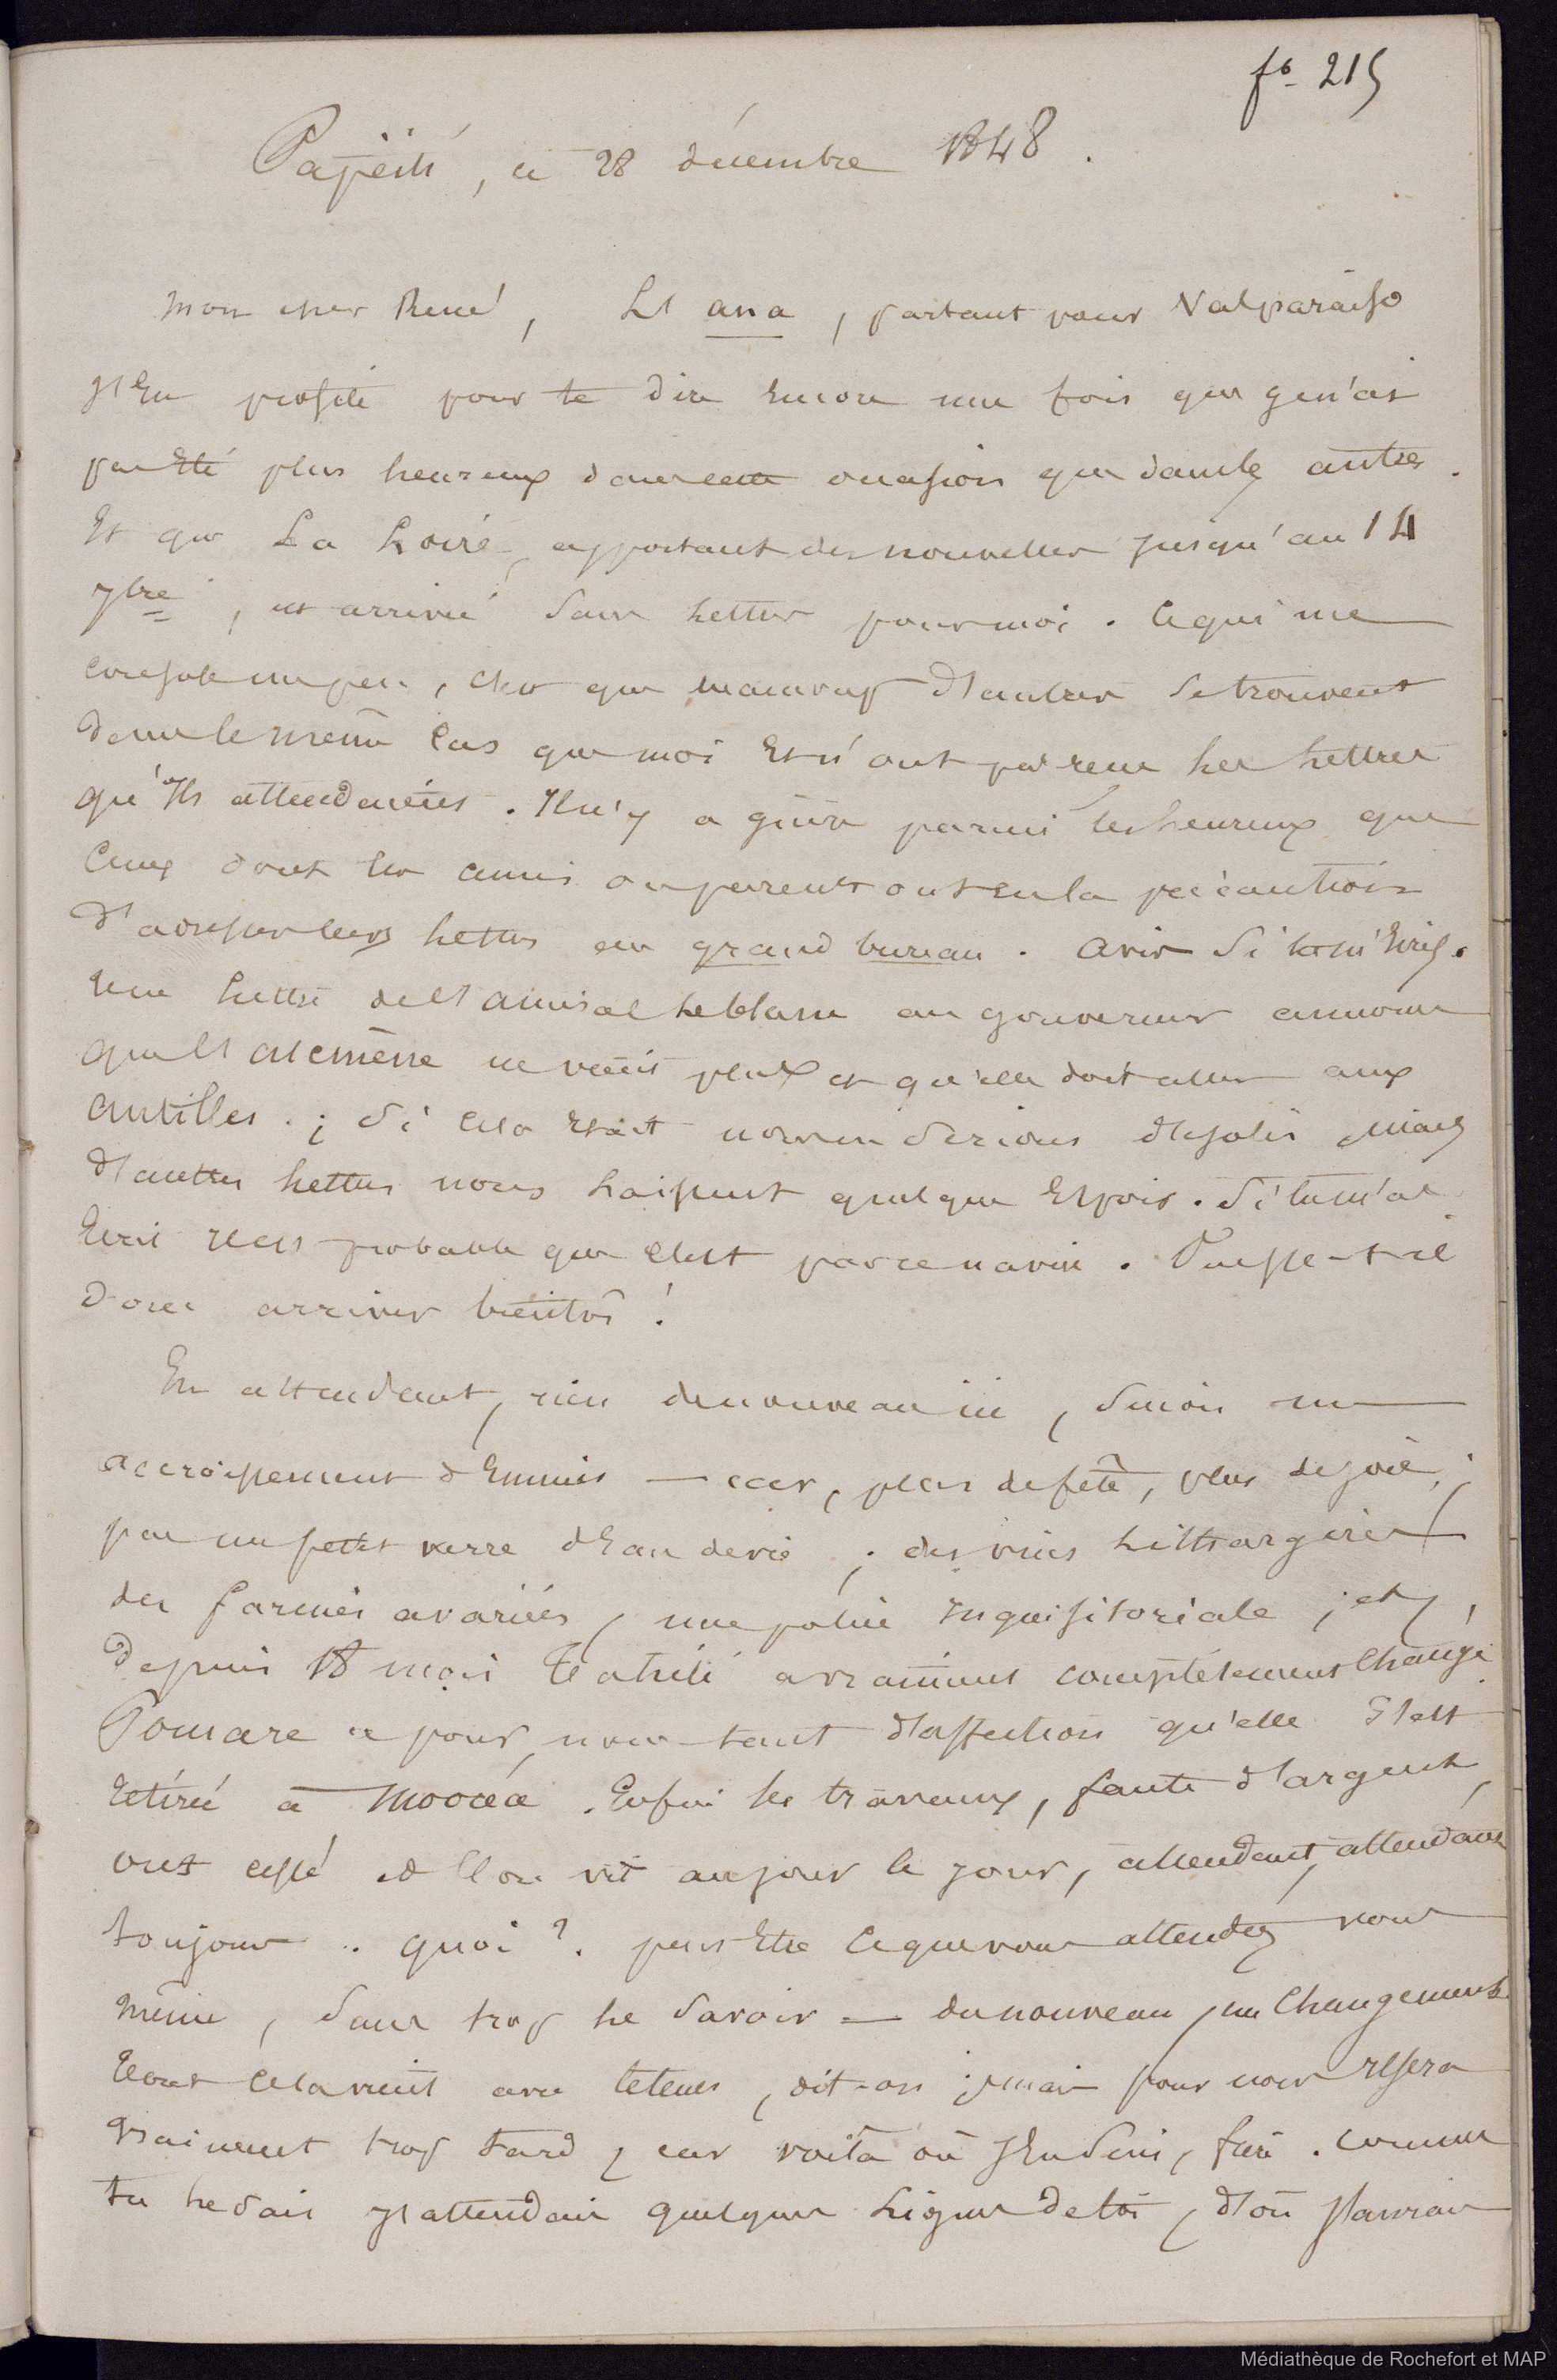 fo 215
Papéiti, ce 28 décembre 1848.
Mon cher René, L'ana, partant pour Valparaiso
j'en profite pour te dire encore une fois que je n'ai
pas été plus heureux dans cette occasion que dans les autres.
Et que La Loire, apportant des nouvelles jusqu'au 14
7bre, est arrivée sans lettres pour moi. Ce qui me
console un peu, c'est que beaucoup d'autres se trouvent
dans le même cas que moi et n'ont pas reçu les lettres
qu'ils attendaient. Il n'y a guère parmi les heureux que
ceux dont les amis ou parents ont eu la précaution
d'adresser leurs lettres au grand bureau. Avis si tu m'écris.
Une lettre de l'amiral Leblanc au gouverneur annonce
que l'alcmène ne vient plus et qu'elle doit aller aux
antilles. ; Si cela était nous en serions désolés, mais
d'autres lettres nous laissent quelque espoir. Si tu m'as
écrit il est probable que c'est par ce navire. Puisse-t-il
donc arriver bientôt !
En attendant, rien de nouveau ici, sinon un
accroissement d'ennuis — car, plus de fête, plus de joie ;
pas un petit verre d'eau de vie ; des vins lithargirés
des farines avariées, une police inquisitoriale ; et,
depuis 18 mois Tahiti a vraiment complétement changé
Pomare a pour nous tant d'affection qu'elle s'est
retirée à Mooréa. Enfin les travaux, faute d'argent,
ont cessé et l'on vit au jour le jour, attendant, attendant
toujours .. quoi ?. peut être ce que vous attendez vous
même, sans trop le savoir — du nouveau, un changement
tout cela vient avec le temps, dit-on ; mais pour nous il sera
vraiment trop tard, car voilà où j'en suis, frère. Comme
tu le sais j'attendais quelques lignes de toi, d'où j'aurais
Médiathèque de Rochefort et MAP